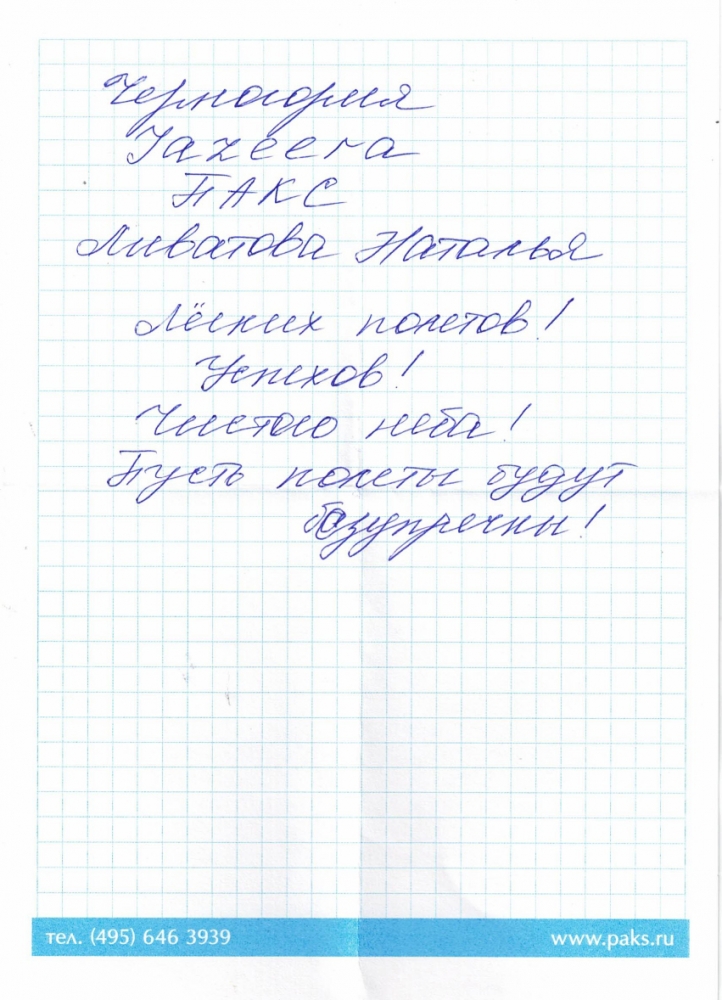 Черногория
Jazeera
ПАКС
Ливатова Наталья
Лёгких полетов!
Успехов!
Чистого неба!
Пусть полеты будут
безупречны!
тел. (495) 646 3939
www.paks.ru